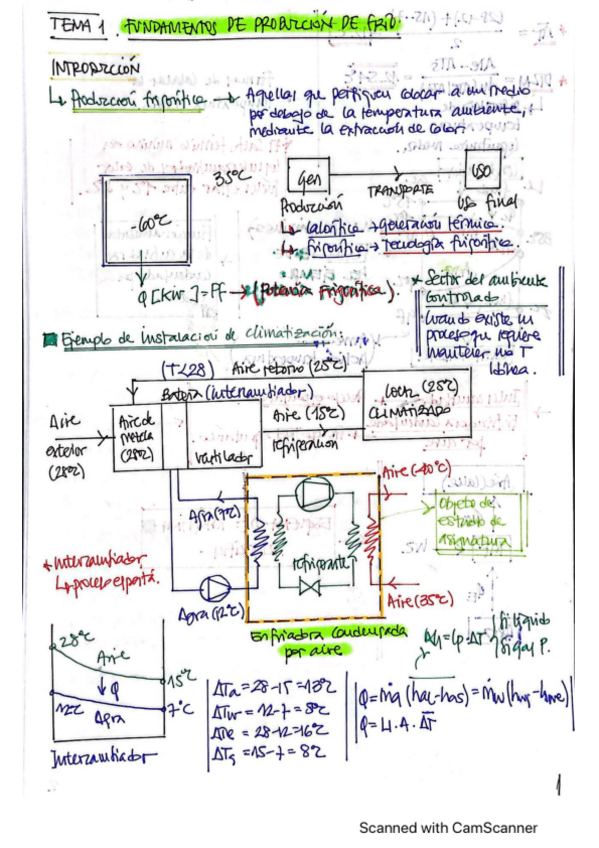 TEMA 1. FUNDAMENTOS DE PRODUCCIÓN DE FRÍO.
INTRODUCCIÓN
↳ Producción frigorífica → Aquellas que persiguen colocar a un medio
por debajo de la temperatura ambiente,
mediante la extracción de calor.
35ºC
-60ºC
Gen
TRANSPORTE
USO
Producción
Uso final
↳ Calorífica → generación térmica.
↳ Frigorífica → Tecnología frigorífica.
Q [kW] = PF → (Potencia Frigorífica).
* Sector del ambiente
controlado
Cuando existe un
proceso que requiere
mantener una T
idónea.
Ejemplo de instalación de climatización:
(T<28) Aire retorno (25ºC)
Batería (intercambiador)
Aire
exterior
(28ºC)
Aire de
mezcla
(28ºC)
ventilador
Aire (15ºC)
refrigeración
Local (25ºC)
CLIMATIZADO
Agua (7ºC)
Agua (12ºC)
refrigerante
Aire (~40ºC)
Aire (35ºC)
Objeto de
estudio de
asignatura
* Intercambiador
↳ proceso isopt.
Enfriadora condensada
por aire
Δh = Cp · ΔT
Si líquido
Si gas P.
28ºC
Aire
15ºC
↓ Q
12ºC
Agua
7ºC
Intercambiador
ΔTa = 28-15 = 13ºC
ΔTw = 12-7 = 5ºC
ΔTe = 28-12 = 16ºC
ΔTs = 15-7 = 8ºC
Q = ṁa (hae-has) = ṁw (hws-hwe)
Q = U · A · ΔT
1
Scanned with CamScanner